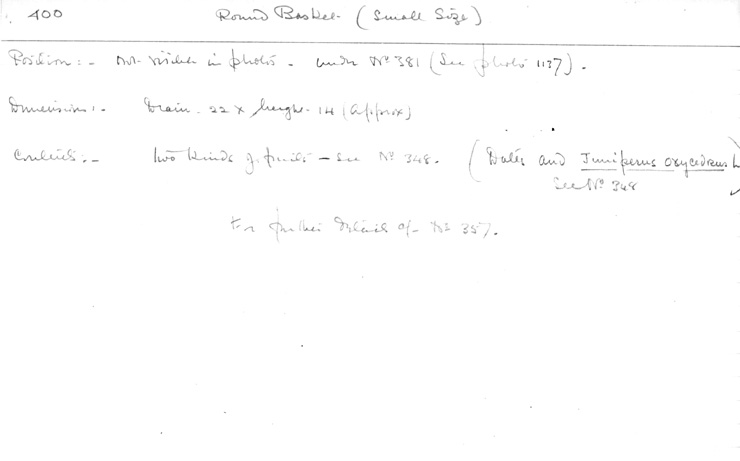 400 Round Basket. (Small Size)
Position:- not visible in photo - under Nº 381 (See photo 1137).
Dimensions:- Diam. 22 x height 14 (approx)
Contents.- two kinds of fruits - see Nº 348. (Dates and Juniperus oxycedrus L
See Nº 348
For further details cf- Nº 357.